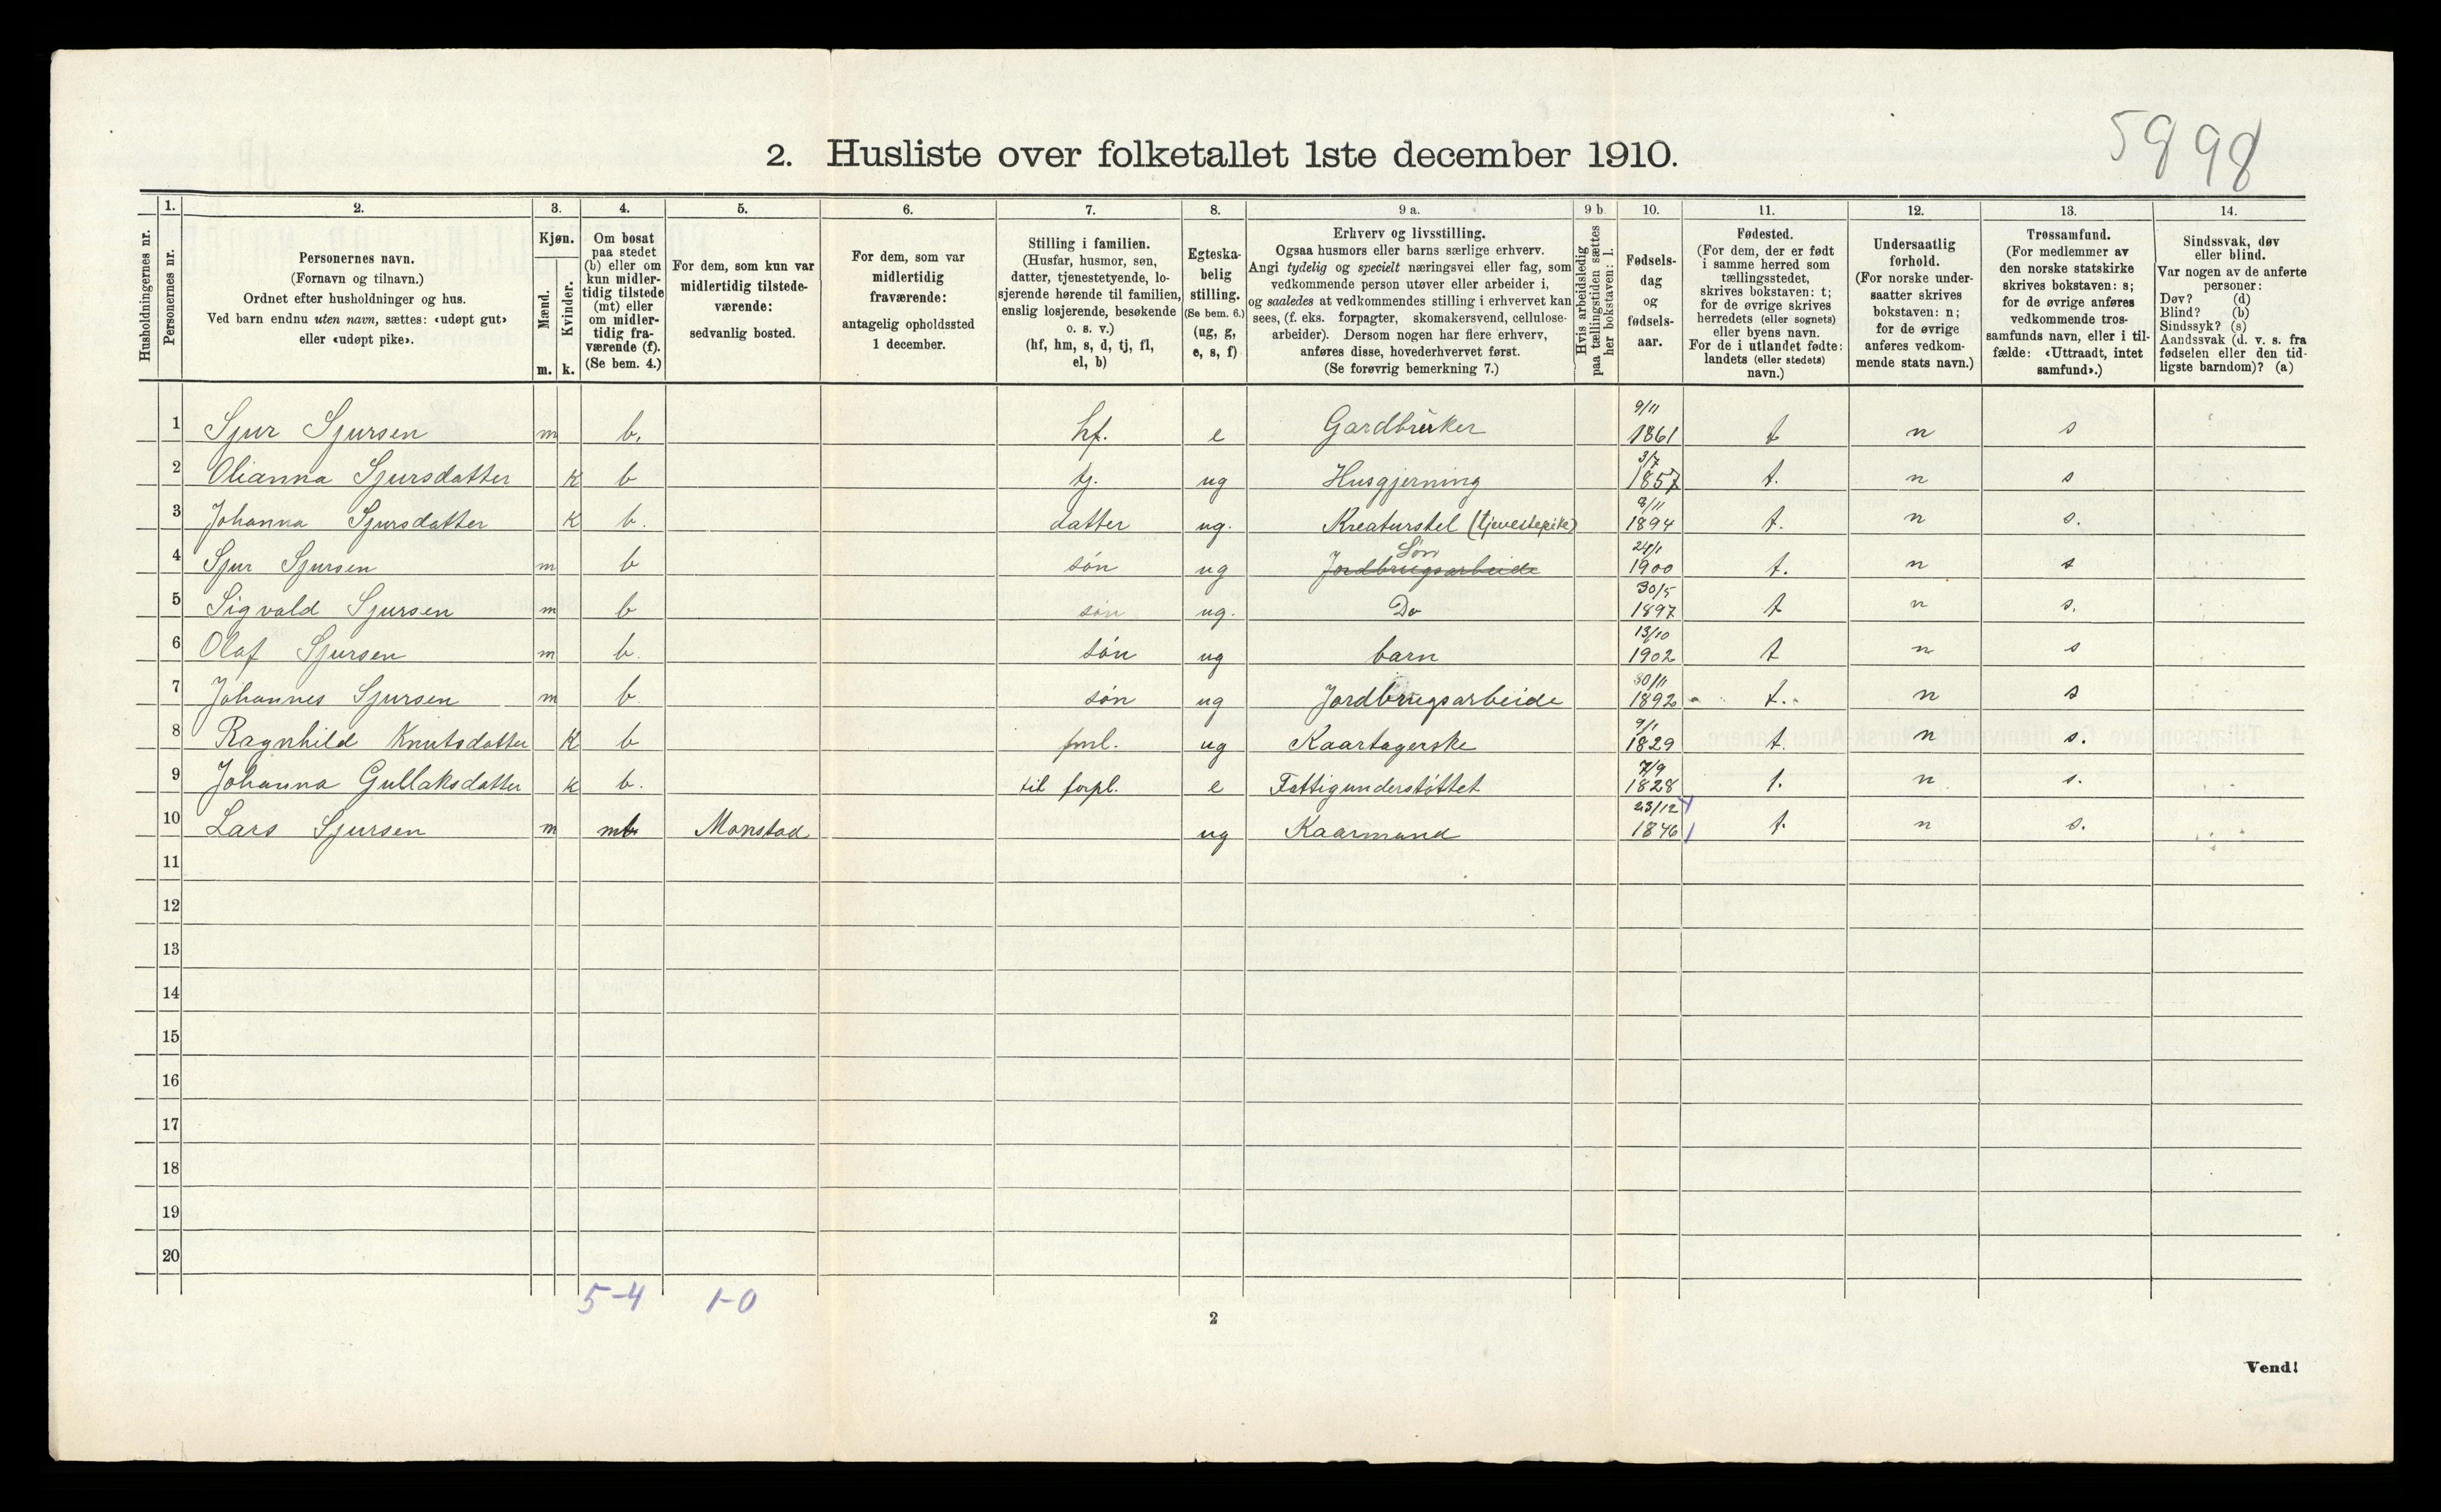 5998
2. Husliste over folketallet 1ste december 1910.
Husholdningernes nr.
1.
Personernes nr.
2.
Personernes navn.
(Fornavn og tilnavn.)
Ordnet efter husholdninger og hus.
Ved barn endnu uten navn, sættes: «udøpt gut»
eller «udøpt pike».
3.
Kjøn.
Mænd.
Kvinder.
m. k.
4.
Om bosat
paa stedet
(b) eller om
kun midler-
tidig tilstede
(mt) eller
om midler-
tidig fra-
værende (f).
(Se bem. 4.)
5.
For dem, som kun var
midlertidig tilstede-
værende:
sedvanlig bosted.
6.
For dem, som var
midlertidig
fraværende:
antagelig opholdssted
1 december.
7.
Stilling i familien.
(Husfar, husmor, søn,
datter, tjenestetyende, lo-
sjerende hørende til familien,
enslig losjerende, besøkende
o. s. v.)
(hf, hm, s, d, tj, fl,
el, b)
8.
Egteska-
belig
stilling.
(Se bem. 6.)
(ug, g,
e, s, f)
9 a.
Erhverv og livsstilling.
Ogsaa husmors eller barns særlige erhverv.
Angi tydelig og specielt næringsvei eller fag, som
vedkommende person utøver eller arbeider i,
og saaledes at vedkommendes stilling i erhvervet kan
sees, (f. eks. forpagter, skomakersvend, cellulose-
arbeider). Dersom nogen har flere erhverv,
anføres disse, hovederhvervet først.
(Se forøvrig bemerkning 7.)
9 b.
Hvis arbeidsledig
paa tællingstiden sættes
her bokstaven: l.
10.
Fødsels-
dag
og
fødsels-
aar.
11.
Fødested.
(For dem, der er født
i samme herred som
tællingsstedet,
skrives bokstaven: t;
for de øvrige skrives
herredets (eller sognets)
eller byens navn.
For de i utlandet fødte:
landets (eller stedets)
navn.)
12.
Undersaatlig
forhold.
(For norske under-
saatter skrives
bokstaven: n;
for de øvrige
anføres vedkom-
mende stats navn.)
13.
Trossamfund.
(For medlemmer av
den norske statskirke
skrives bokstaven: s;
for de øvrige anføres
vedkommende tros-
samfunds navn, eller i til-
fælde: «Uttraadt, intet
samfund».)
14.
Sindssvak, døv
eller blind.
Var nogen av de anførte
personer:
Døv? (d)
Blind? (b)
Sindssyk? (s)
Aandssvak (d. v. s. fra
fødselen eller den tid-
ligste barndom)? (a)
1 Sjur Sjursen m b. hf. e Gardbruker 9/11 1861 t n s
2 Olianna Sjursdatter K b tj. ug Husgjerning 3/7 1857 t. n s
3 Johanna Sjursdatter K b. datter ug. Kreaturstel (tjenestepike) 1894 t. n s.
4 Sjur Sjursen m b søn ug Jordbrugsarbeide Søn 1900 t. n s
5 Sigvald Sjursen m b søn ug. Do 30/5 1897 t n s.
6 Olaf Sjursen m b. søn ug barn 13/10 1902 t n s
7 Johannes Sjursen m b. søn ug Jordbrugsarbeide 30/11 1892 t. n s
8 Ragnhild Knutsdatter K b fml. ug Kaartagerske 9/1 1829 t. n s.
9 Johanna Gullaksdatter k b. til forpl. e Fattigunderstøttet 7/9 1828 t. n s.
10 Lars Sjursen m Monstad ug Kaarmand 23/12 1846 t. n s.
11
12
13
14
15
16
17
18
19
20
5-4 1-0
2
Vend!